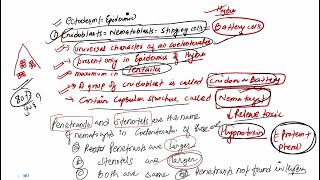 • Ectoderm = Epidermis
Hydra
① Cnidoblasts = Nematoblasts = Stinging cells = Battery cells
• Universal character of all coelenterates
• present only in Epidermis of Hydra
• maximum in Tentacles
• A group of cnidoblast is called Cnidom = Battery
• Contain Capsular structure called Nematocyst
↓ Release toxic
Hypnotoxin
(Protein + phenol)
Penetrants and stenoteles are the name
of nematocysts in Coelenterates of these
ⓐ penetrants larger
ⓑ stenoteles are larger
ⓒ Both are same ⓓ penetrants not found in Hydra